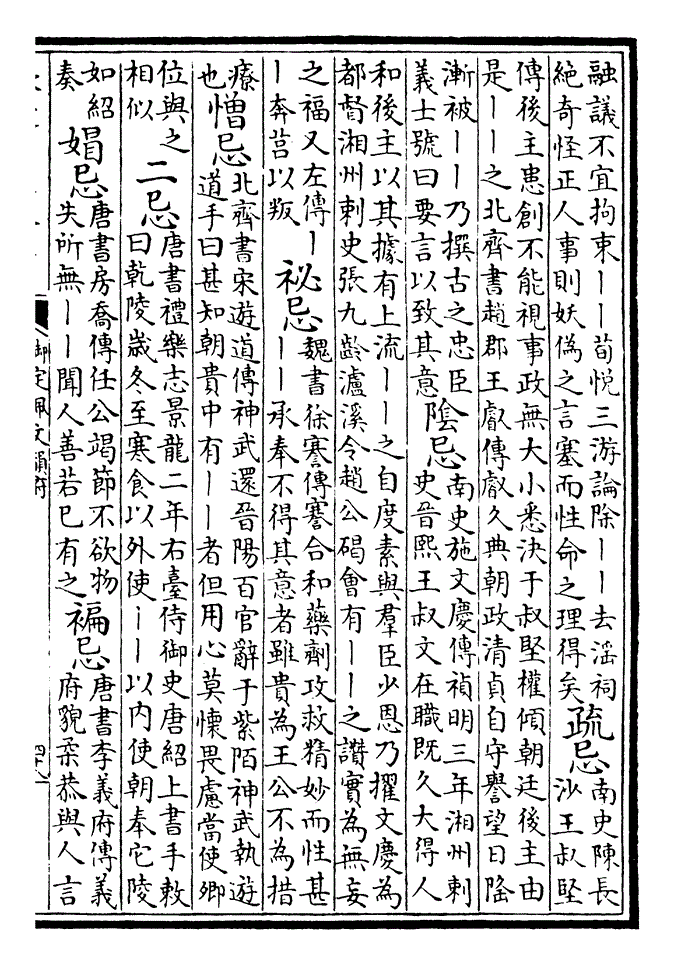 融議不宜拘束——荀悅三游論除——去滛祠
絶奇怪正人事則妖偽之言塞而性命之理得矣
疏忌
南史陳長
沙王叔堅
傳後主患創不能視事政無大小悉決于叔堅權傾朝廷後主由
是——之北齊書趙郡王叡傳叡久典朝政清貞自守譽望日隆
漸被——乃撰古之忠臣
義士號曰要言以致其意
陰忌
南史施文慶傳禎明三年湘州刺
史晉熙王叔文在職既久大得人
和後主以其據有上流——之自度素與羣臣少恩乃擢文慶為
都督湘州刺史張九齡瀘溪令趙公碣會有——之讚實為無妄
之福又左傳—
—奔莒以叛
祕忌
魏書徐謇傳謇合和藥劑攻救精妙而性甚
——承奉不得其意者雖貴為王公不為措
療
也
憎忌
北齊書宋遊道傳神武還晉陽百官辭于紫陌神武執遊
道手曰甚知朝貴中有——者但用心莫懷畏慮當使卿
位與之
相似
二忌
唐書禮樂志景龍二年右臺侍御史唐紹上書手敕
曰乾陵歲冬至寒食以外使——以内使朝奉它陵
如紹
奏
媢忌
唐書房喬傳任公竭節不欲物
失所無——聞人善若已有之
褊忌
唐書李義府傳義
府貌柔恭與人言
御定佩文韻府